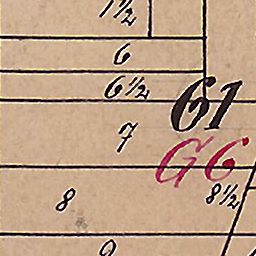 1½
6
6½
61
7
G6
8½
8
9